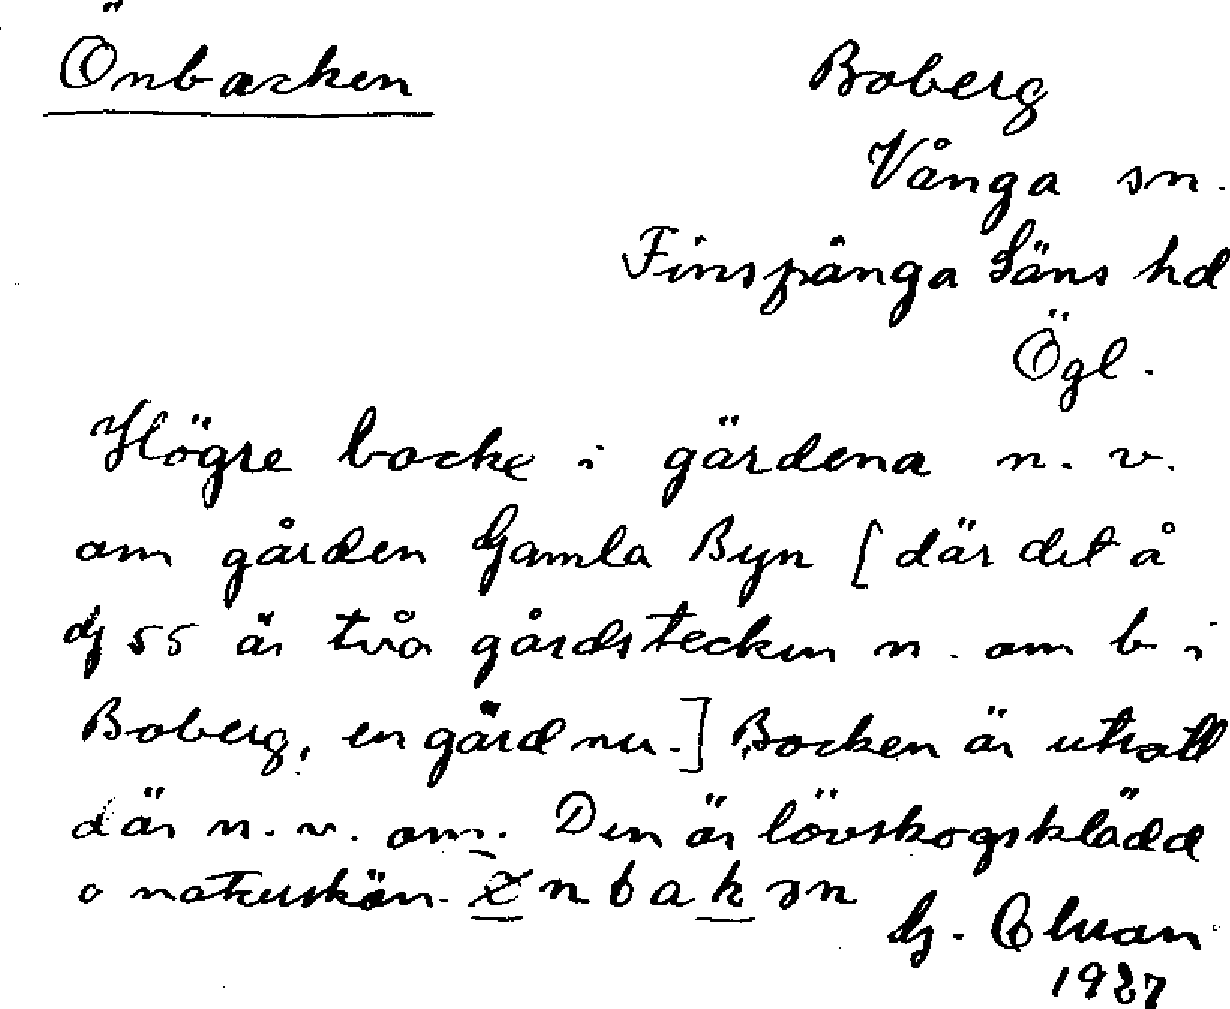 Önbacken
Boberg
Vånga sn.
Finspånga läns hd
Ögl.
Högre backe i gärdena n. v.
om gården Gamla Byn [där det å
G 55 är två gårdstecken n. om b i
Boberg, en gård nu.] Backen är utsatt
där n. v. om. Den är lövskogsklädd
o naturskön.
G.
1927